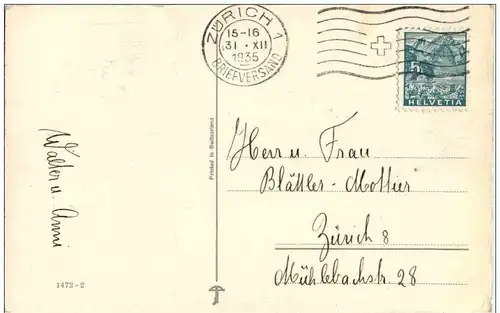 ZÜRICH 1
15-16
31 · XII
1935
BRIEFVERSAND
5
HELVETIA
Printed in Switzerland
Herr u. Frau
Blättler-Mottier
Zürich 8
Mühlebachstr. 28
Walter u. Anni
1472-2